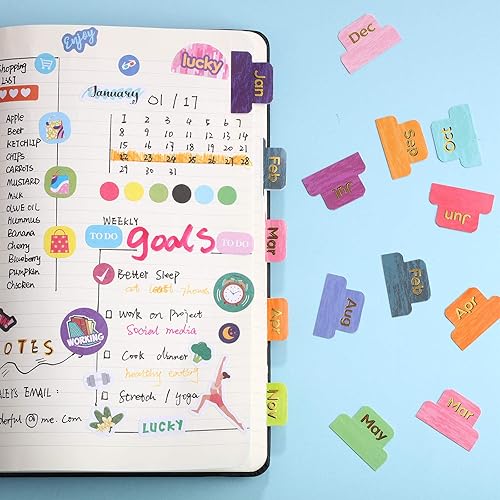 Enjoy
Shopping
LIST
Apple
Beer
KETCHUP
CHIPS
CARROTS
MUSTARD
MILK
OLIVE OIL
Hummus
Banana
Cherry
Blueberry
Pumpkin
Chicken
NOTES
EY'S EMAIL:
derful @ me.com
lucky
January 01/17
1 2 3 4 5 6 7
8 9 10 11 12 13 14
15 16 17 18 19 20 21
22 23 24 25 26 27 28
29 30 31
WEEKLY
TO DO goals TO DO
Better Sleep
at least 7 hours
WORKING
Work on Project
Social media
Cook dinner
healthy eating
Stretch / yoga
LUCKY
Jan
Feb
Mar
Apr
Nov
Dec
Sep
Oct
Jul
Jun
Aug
Feb
Apr
May
Mar